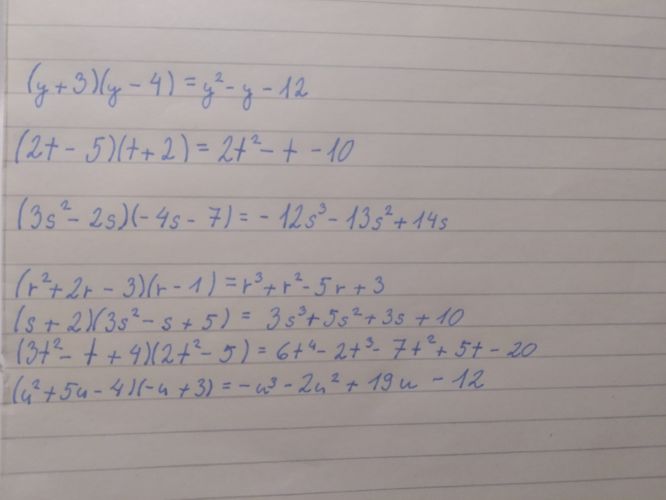 (y+3)(y-4)=y²-y-12
(2t-5)(t+2)=2t²-t-10
(3s²-2s)(-4s-7)=-12s³-13s²+14s
(r²+2r-3)(r-1)=r³+r²-5r+3
(s+2)(3s²-s+5)=3s³+5s²+3s+10
(3t²-t+4)(2t²-5)=6t⁴-2t³-7t²+5t-20
(u²+5u-4)(-u+3)=-u³-2u²+19u-12